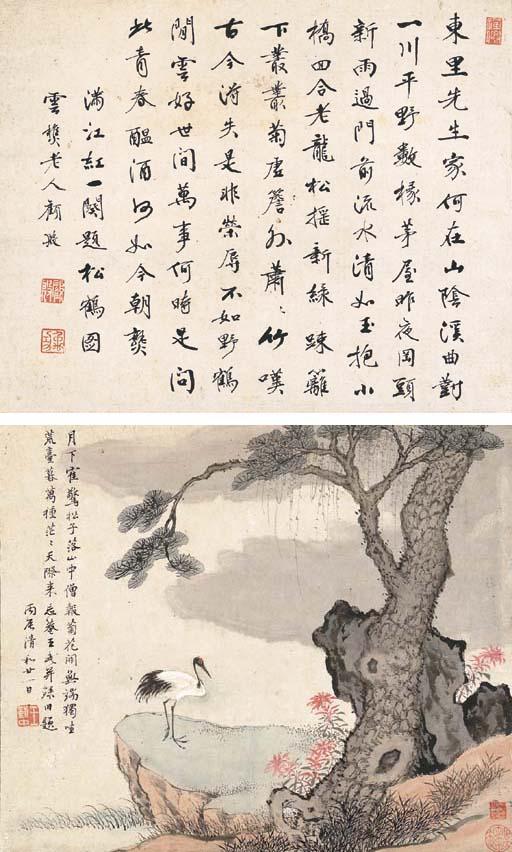 東里先生家何在山陰溪曲對
一川平野數椽茅屋昨夜岡頭
新雨過門前流水清如玉抱小
橋回合老龍松搖新綠踈籬
下叢叢菊虛簷外蕭〻竹嘆
古今得失是非榮辱不如野鶴
閒雲好世間萬事何時足問
此青春醖酒何如今朝熟
滿江紅一闋題松鶴图
雲樵老人顧殷
月下隺驚松子落山中僧報菊花開無端獨坐
荒臺暮萬種茫〻天際来忘菴王武并録旧題
丙辰清和廿一日